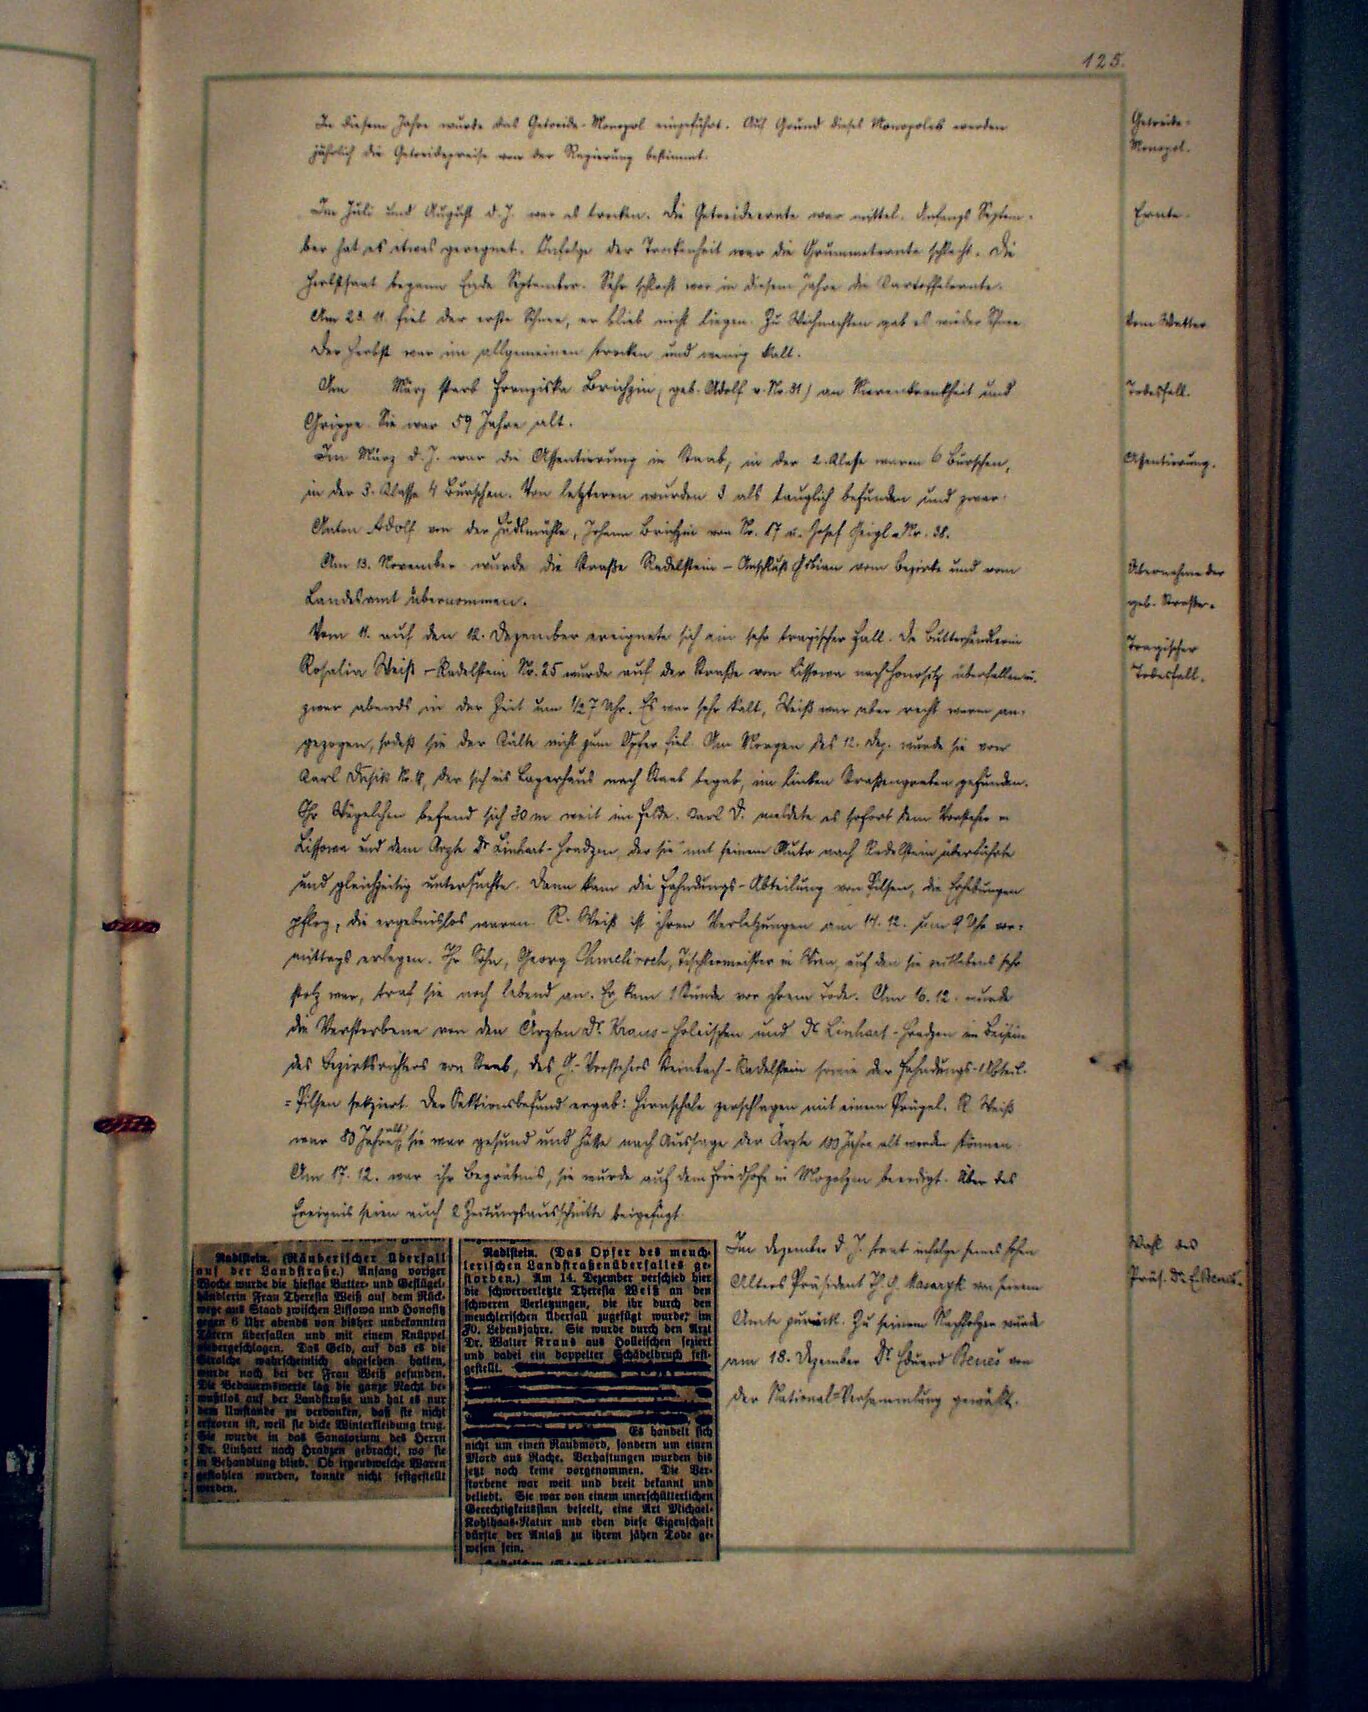 125.
In diesem Jahre wurde das Getreide-Monopol eingeführt. Auf Grund dieses Monopoles werden
jährlich die Getreidepreise von der Regierung bestimmt.
Getreide-
Monopol.
Im Juli und August d. J. war es trocken. Die Getreideernte war mittel. Anfangs Septem-
ber hat es etwas geregnet. Infolge der Trokenheit war die Grummeternte schlecht. Die
Herbstsaat begann Ende September. Sehr schlecht war in diesem Jahre die Kartoffelernte.
Ernte.
Am 23. 11. fiel der erste Schnee, er blieb nicht liegen. Zu Weihnachten gab es wieder Schnee.
Der Herbst war im allgemeinen trocken und wenig kalt.
Vom Wetter
Am März starb Franziska Brichzin (geb. Adolf v. Nr. 31) an Nierenkrankheit und
Grippe. Sie war 59 Jahre alt.
Todesfall.
Im März d. J. war die Assentierung in Staab, in der 2. Klasse waren 6 Burschen,
in der 3. Klasse 4 Burschen. Von letzteren wurden 3 als tauglich befunden und zwar:
Anton Adolf von der Hudlmühle, Johann Brichzin von Nr. 17 u. Josef Geigl Nr. 38.
Assentierung.
Am 13. November wurde die Straße Radelstein – Anschluß vom Bezirke und vom
Landesamt übernommen.
Übernahme der
geb. Straße.
Vom 11. auf den 12. Dezember ereignete sich ein sehr tragischer Fall. Die Butterhändlerin
Rosalia Weiß – Radelstein Nr. 25 wurde auf der Straße von Lissowa nach Honositz überfallen u.
zwar abends in der Zeit um 1/2 7 Uhr. Es war sehr kalt, Weiß war aber recht warm an-
gezogen, sodaß sie der Kälte nicht zum Opfer fiel. Am Morgen des 12. Dez. wurde sie von
Karl Nr. 4, der sich ins Lagerhaus nach Staab begab, im linken Straßengraben gefunden.
Ihr Wägelchen befand sich 30 m weit im Felde. Karl D. meldete es sofort dem Vorsteher in
Lissowa und dem Arzte Dr Linhart-Hradzen, der sie mit seinem Auto nach Radelstein überführte
und gleichzeitig untersuchte. Dann kam die Fahndungs-Abteilung von Pilsen, die Erhebungen
pflog, die ergebnislos waren. R. Weiß ist ihren Verletzungen am 14. 12. um 9 Uhr vor-
mittags erlegen. Ihr Sohn, Georg Chmelirsch, Tischlermeister in Wien, auf den sie zeitlebens sehr
stolz war, traf sie noch lebend an. Er kam 1 Stunde vor ihrem Tode. Am 16. 12. wurde
die Verstorbene von den Ärzten Dr. Kraus-Holeischen und Dr Linhart-Hradzen im Beisein
des Bezirksrichters von Staab, des G.-Vorstehers Steinbach-Radelstein sowie der Fahndungs-Abteil.
=Pilsen seziert. Der Sektionsbefund ergab: Hirnschale zerschlagen mit einem Prügel. R. Weiß
war 80 Jahre alt, sie war gesund und hätte nach Aussage der Ärzte 100 Jahre alt werden können.
Am 17. 12. war ihr Begräbnis, sie wurde auf dem Friedhofe in beerdigt. Über das
Ereignis seien auch 2 Zeitungsausschnitte beigefügt.
Tragischer
Todesfall.
Radlstein. (Räuberischer Überfall
auf der Landstraße.) Anfang voriger
Woche wurde die hiesige Butter- und Geflügel-
händlerin Frau Theresia Weiß auf dem Rück-
wege aus Staab zwischen Lissowa und Honositz
gegen 6 Uhr abends von bisher unbekannten
Tätern überfallen und mit einem Knüppel
niedergeschlagen. Das Geld, auf das es die
Strolche wahrscheinlich abgesehen hatten,
wurde noch bei der Frau Weiß gefunden.
Die Bedauernswerte lag die ganze Nacht be-
wußtlos auf der Landstraße und hat es nur
dem Umstande zu verdanken, daß sie nicht
erfroren ist, weil sie dicke Winterkleidung trug.
Sie wurde in das Sanatorium des Herrn
Dr. Linhart nach Hradzen gebracht, wo sie
in Behandlung blieb. Ob irgendwelche Waren
gestohlen wurden, konnte nicht festgestellt
werden.
Radlstein. (Das Opfer des meuch-
lerischen Landstraßenüberfalles ge-
storben.) Am 14. Dezember verschied hier
die schwerverletzte Theresia Weiß an den
schweren Verletzungen, die ihr durch den
meuchlerischen Überfall zugefügt wurde, im
70. Lebensjahre. Sie wurde durch den Arzt
Dr. Walter Kraus aus Holleischen seziert
und dabei ein doppelter Schädelbruch fest-
gestellt.
Es handelt sich
nicht um einen Raubmord, sondern um einen
Mord aus Rache. Verhaftungen wurden bis
jetzt noch keine vorgenommen. Die Ver-
storbene war weit und breit bekannt und
beliebt. Sie war von einem unerschütterlichen
Gerechtigkeitssinn beseelt, eine Art Michael-
Kohlhaas-Natur und eben diese Eigenschaft
dürfte der Anlaß zu ihrem jähen Tode ge-
wesen sein.
Im Dezember d. J. trat infolge seines hohen
Alters Präsident Th. G. Masaryk von seinem
Amte zurück. Zu seinem Nachfolger wurde
am 18. Dezember Dr Eduard Beneš von
der National-Versammlung gewählt.
Wahl des
Präs. Dr. E. Beneš.